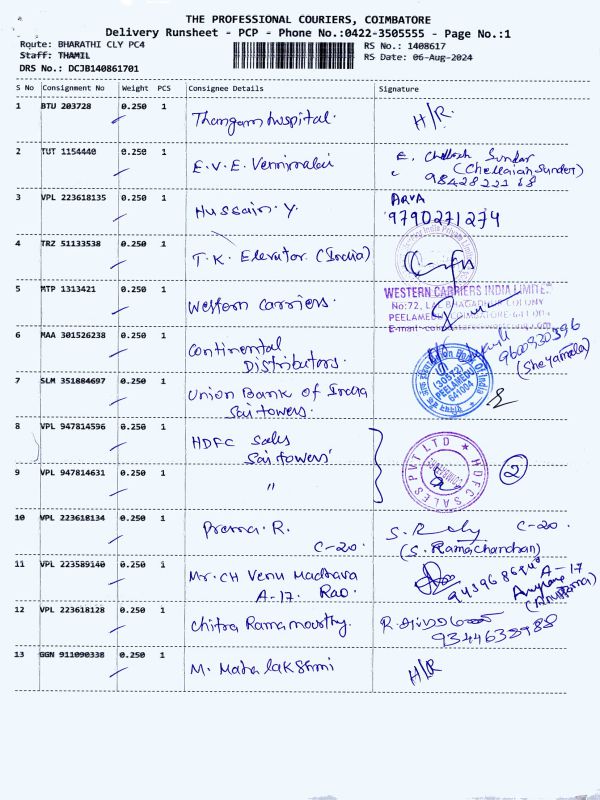 THE PROFESSIONAL COURIERS, COIMBATORE
Delivery Runsheet - PCP - Phone No.:0422-3505555 - Page No.:1
Route: BHARATHI CLY PC4 RS No.: 1408617
Staff: THAMIL RS Date: 06-Aug-2024
DRS No.: DCJB140861701
S No Consignment No Weight PCS Consignee Details Signature
1 BTU 203728 0.250 1 Thangam hospital. H/R.
2 TUT 1154440 0.250 1 E.V.E. Vennimalai E. Chellaiah Sundar
(Chellaiah Sunder)
3 VPL 223618135 0.250 1 Hussain. Y. ARVA
9790271274
4 TRZ 51133538 0.250 1 T.K. Elevator (India)
5 MTP 1313421 0.250 1 Western carriers. WESTERN CARRIERS INDIA LIMITED
No:72, LAL BHAGADHUR COLONY
PEELAMEDU, COIMBATORE-641 004
E-mail-
6 MAA 301526238 0.250 1 Continental
Distributors. 9600920396
(Sheyamala)
7 SLM 351884697 0.250 1 Union Bank of India
Sai towers. Union Bank Of India
PEELAMEDU
641004
8 VPL 947814596 0.250 1 HDFC Sales
Sai towers HDFC SALES PVT LTD 2
9 VPL 947814631 0.250 1 "
10 VPL 223618134 0.250 1 Prema. R. C-20.
C-20. (S. Ramachandran)
11 VPL 223589140 0.250 1 Mr. CH Venu Madhava A-17
A-17. Rao. (Anupama)
12 VPL 223618128 0.250 1 Chitra Ramamoorthy.
9344638988
13 GGN 911090338 0.250 1 M. Mahalakshmi H/R